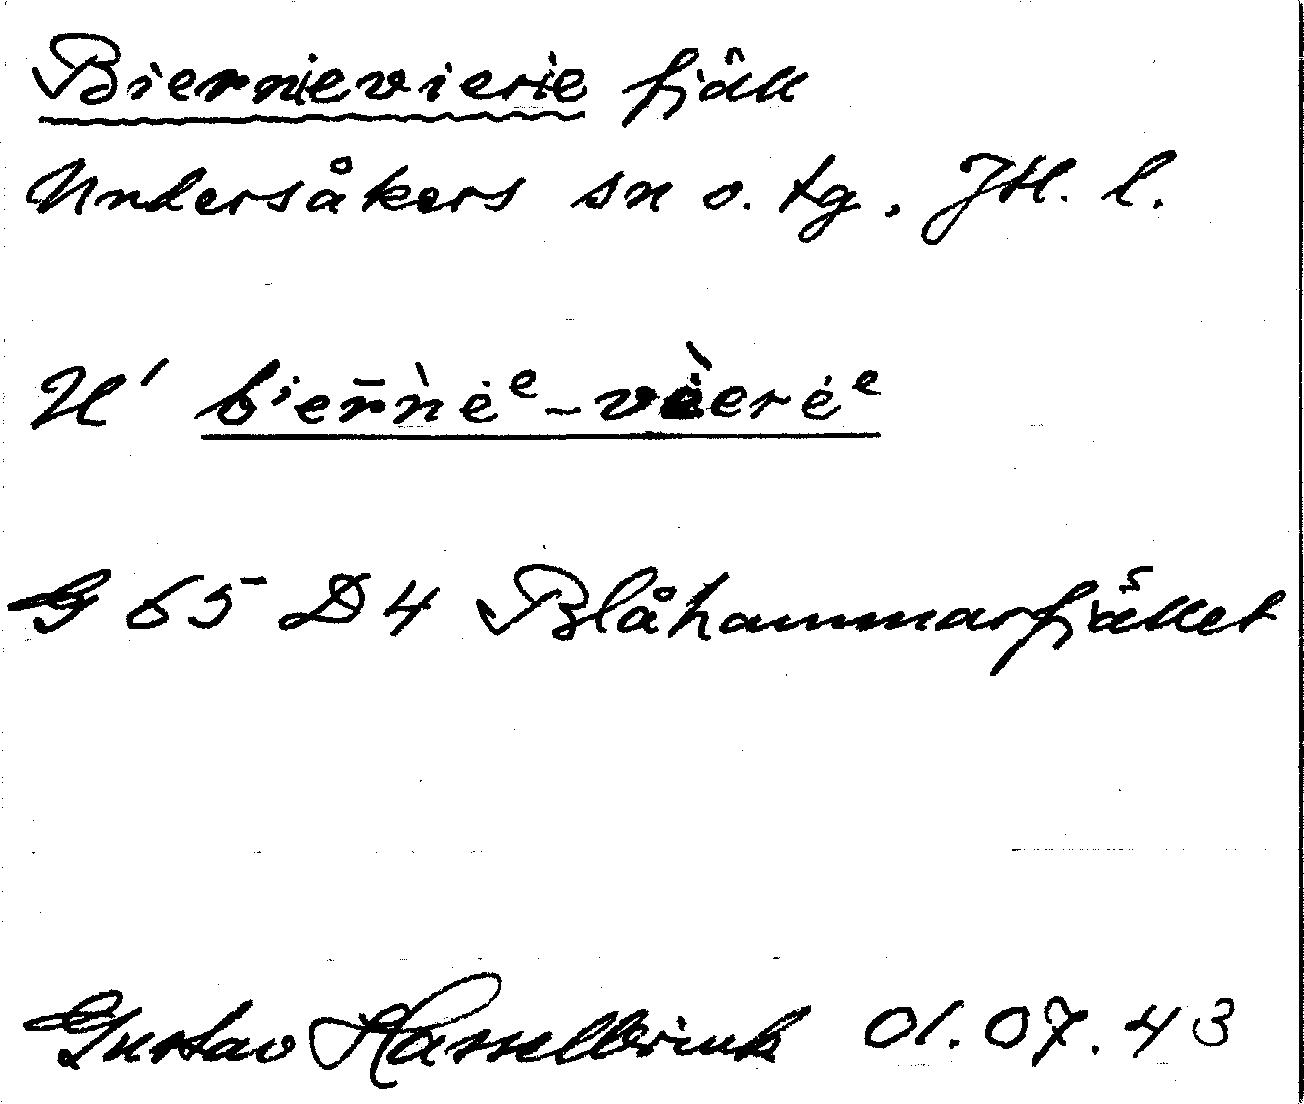 Biernievierie fjäll
Undersåkers sn o. tg. JH. l.
U' bi̇er̄ǹėᵉ-vi̇̀erėᵉ
G 65 D4 Blåhammarfjället
Gustav Hasselbrink 01.07.43